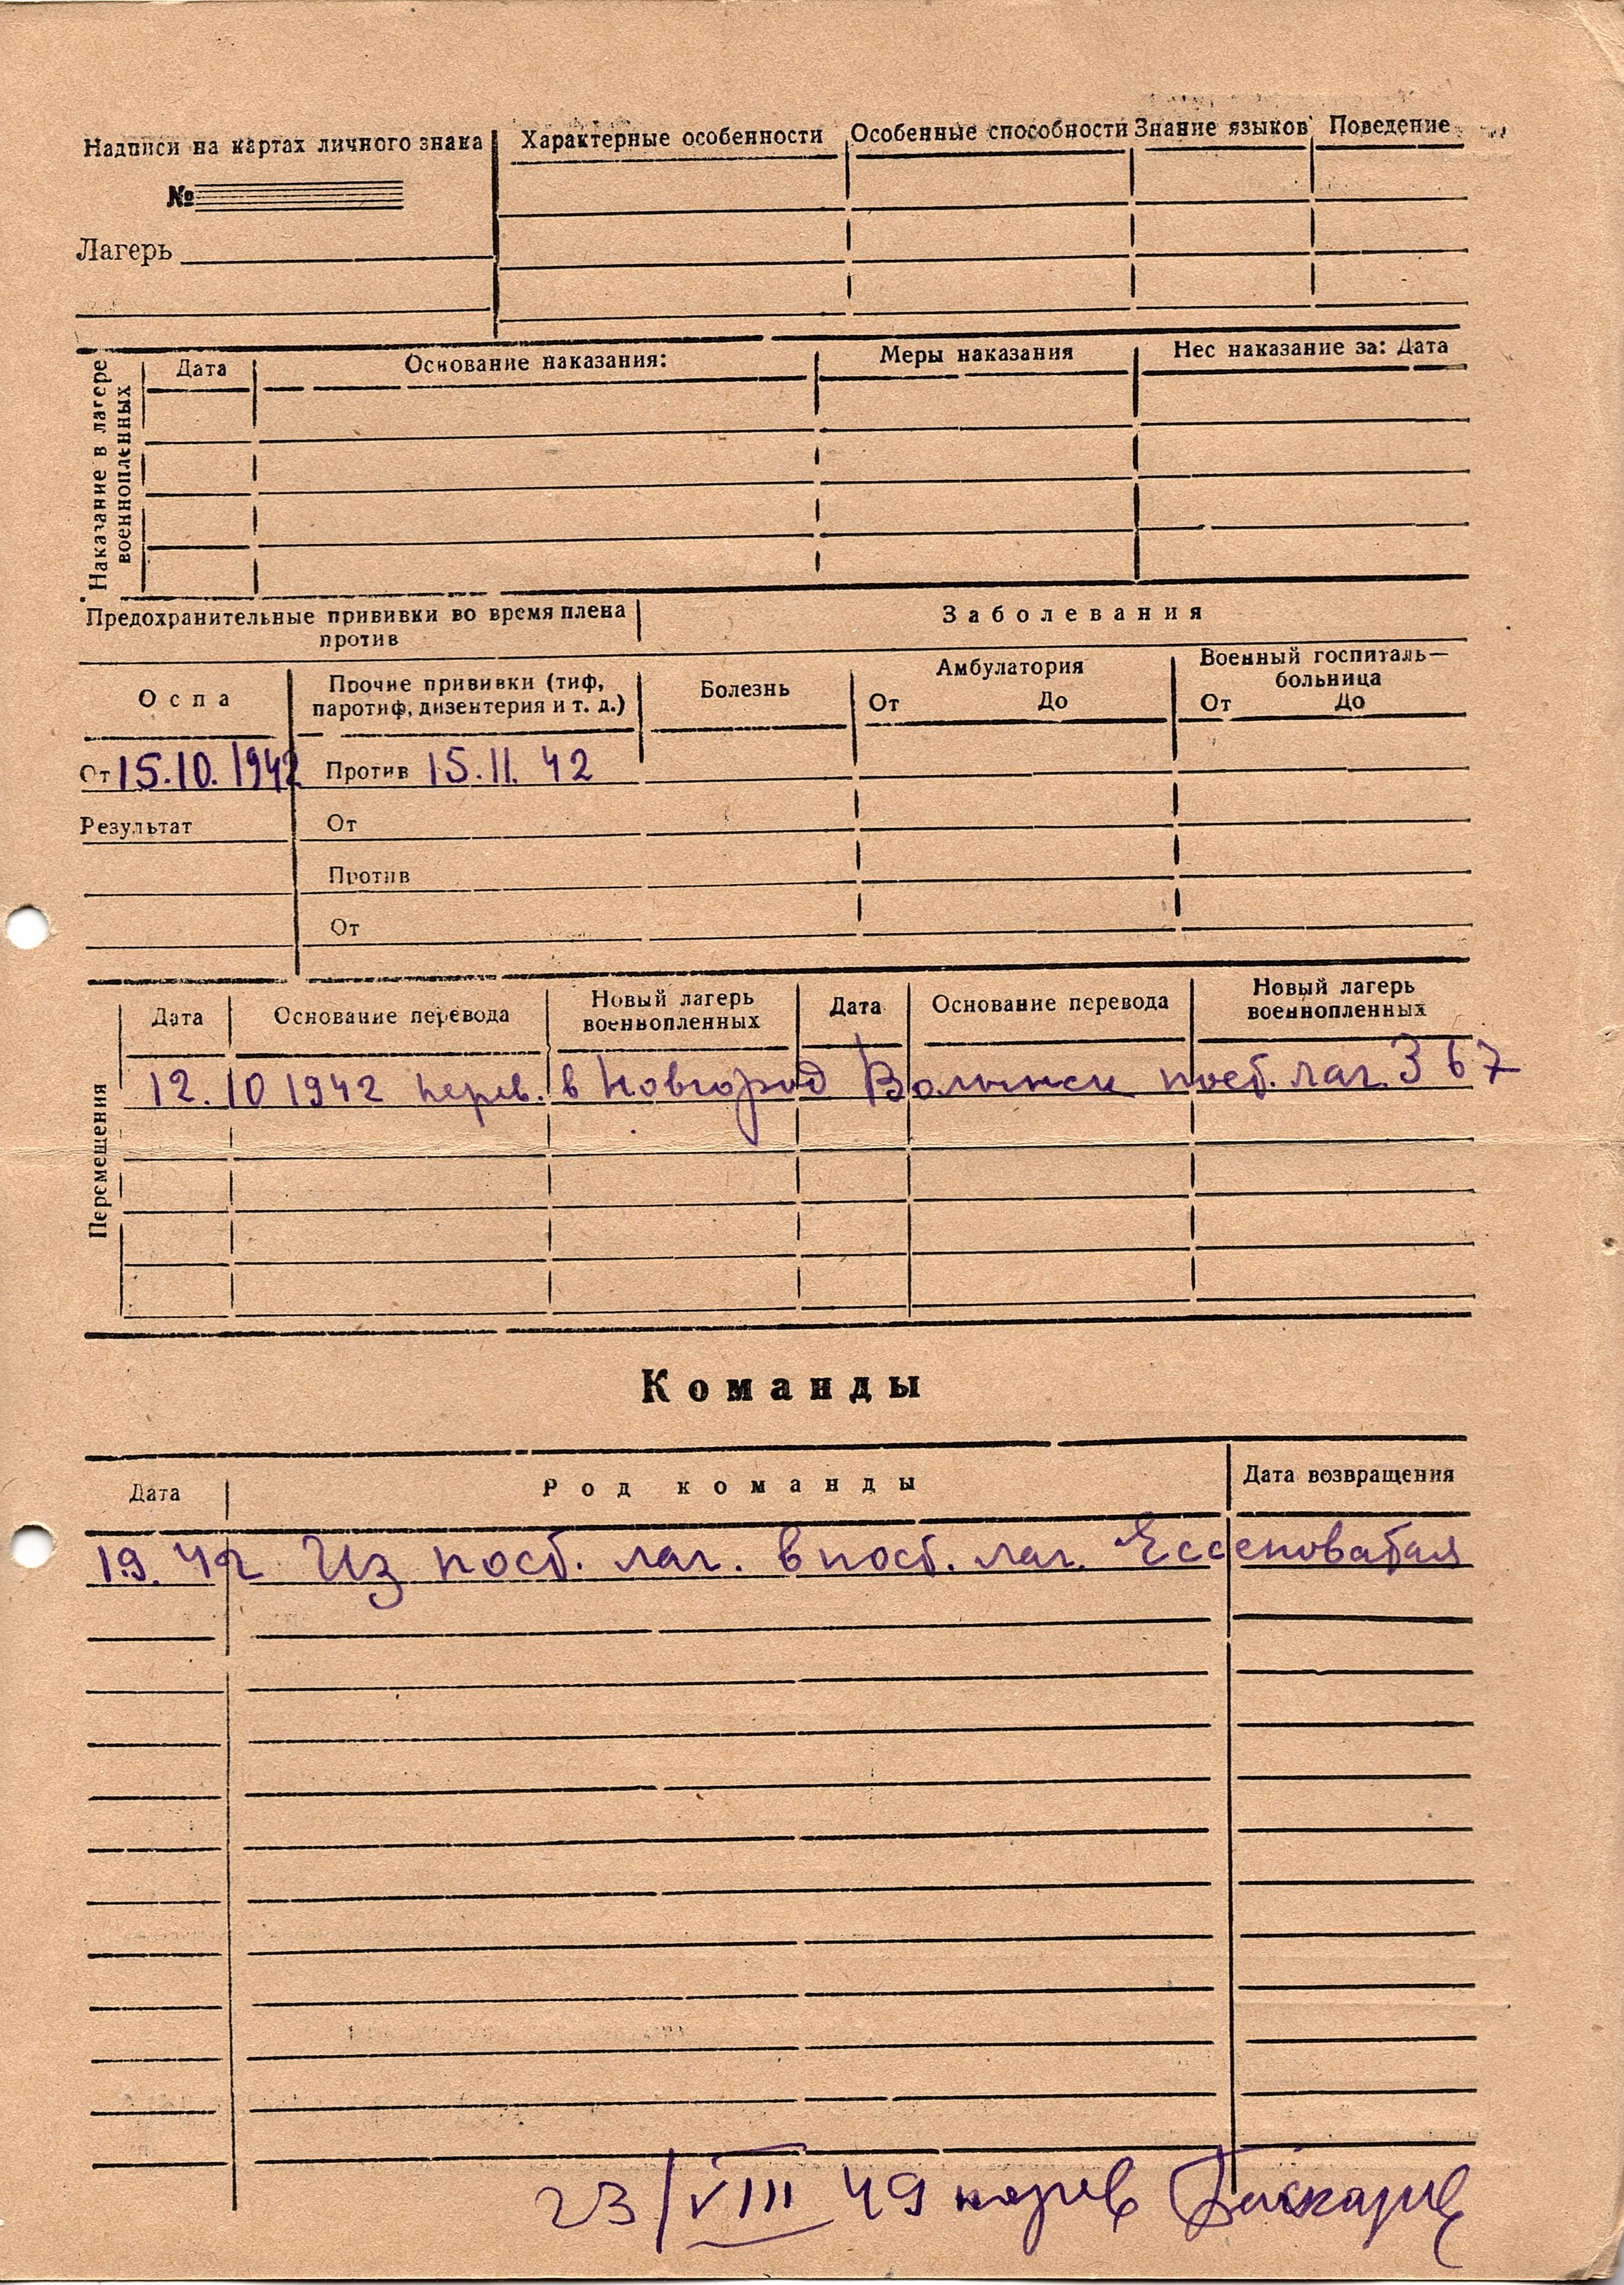 Надписи на картах личного знака
№
Лагерь
Характерные особенности Особенные способности Знание языков Поведение
Наказание в лагере военнопленных
Дата Основание наказания: Меры наказания Нес наказание за: Дата
Предохранительные прививки во время плена
против
Заболевания
Оспа
Прочие прививки (тиф,
паротиф, дизентерия и т. д.)
Болезнь
Амбулатория
От До
Военный госпиталь—
больница
От До
От 15.10.1942 Против 15.11.42
Результат От
Против
От
Перемещения
Дата Основание перевода Новый лагерь
военнопленных
Дата Основание перевода Новый лагерь
военнопленных
12.10 1942 перев. в Новгород Волынск пост. лаг. 367
Команды
Дата Род команды Дата возвращения
1.9.42 Из пост. лаг. в пост. лаг. Ессеноватая
23/VIII 49 перев